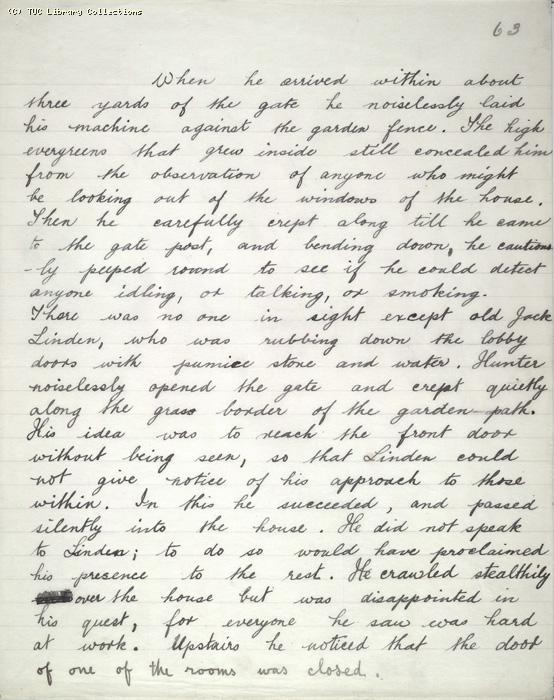 (C) TUC Library Collections
63
When he arrived within about
three yards of the gate he noiselessly laid
his machine against the garden fence. The high
evergreens that grew inside still concealed him
from the observation of anyone who might
be looking out of the windows of the house.
Then he carefully crept along till he came
to the gate post, and bending down, he cautious
-ly peeped round to see if he could detect
anyone idling, or talking, or smoking.
There was no one in sight except old Jack
Linden, who was rubbing down the lobby
doors with pumice stone and water. Hunter
noiselessly opened the gate and crept quietly
along the grass border of the garden path.
His idea was to reach the front door
without being seen, so that Linden could
not give notice of his approach to those
within. In this he succeeded, and passed
silently into the house. He did not speak
to Linden; to do so would have proclaimed
his presence to the rest. He crawled stealthily
over the house but was disappointed in
his quest, for everyone he saw was hard
at work. Upstairs he noticed that the door
of one of the rooms was closed.